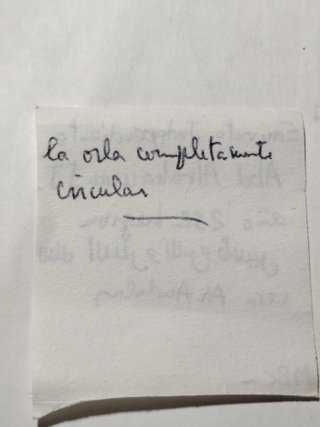 la orla completamente
circular